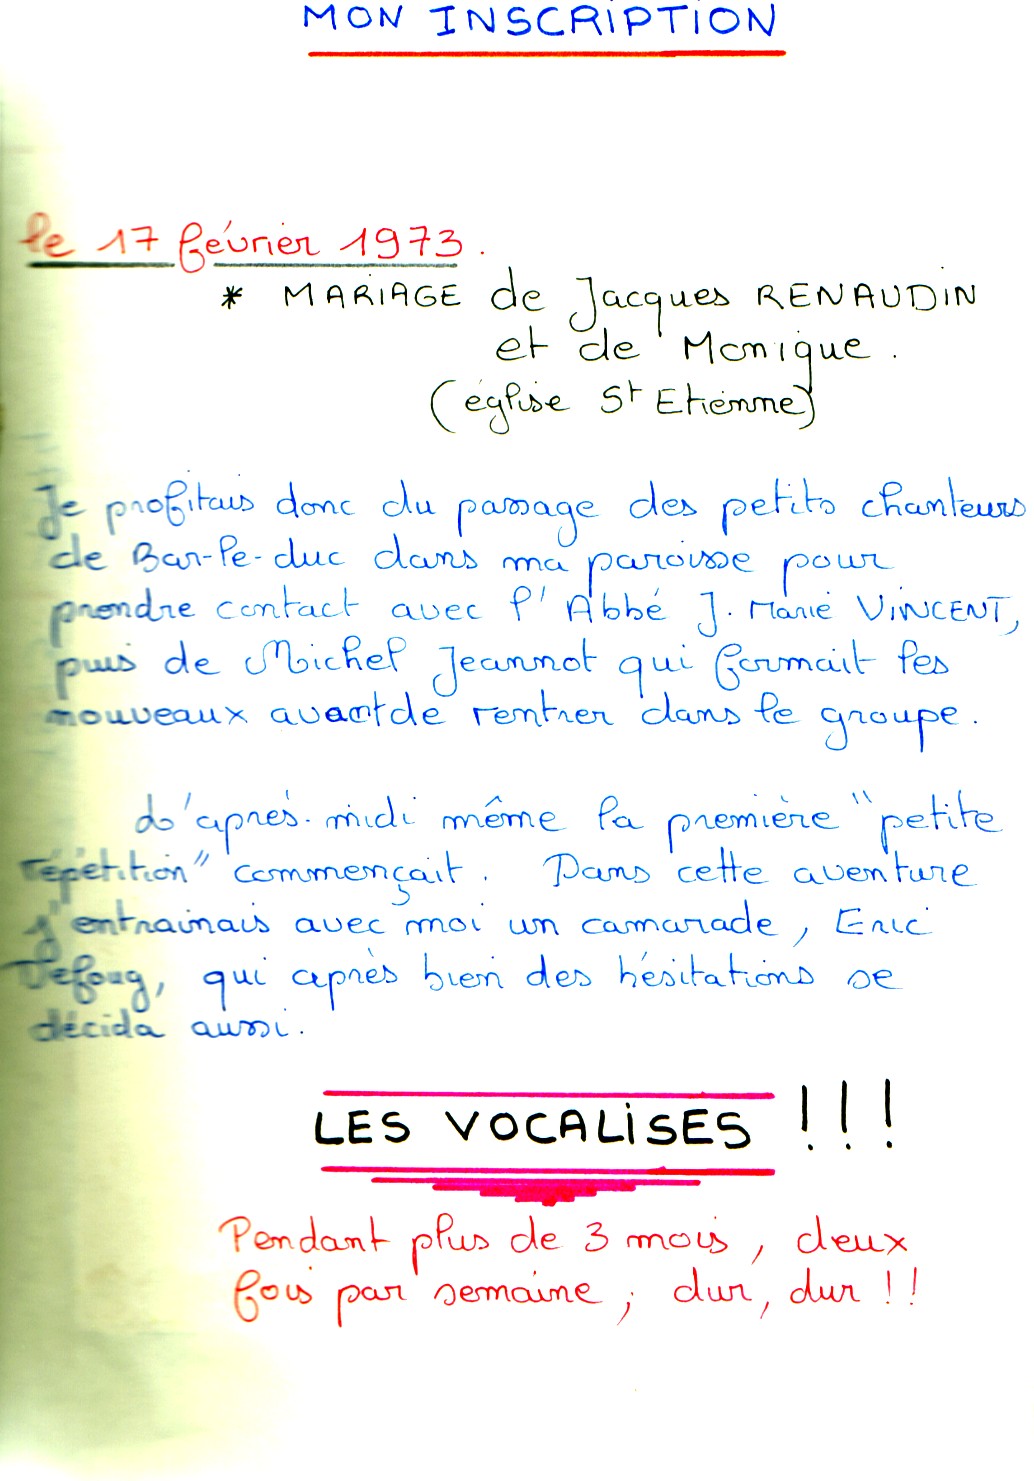 MON INSCRIPTION
le 17 février 1973.
* MARIAGE de Jacques RENAUDIN
et de Monique.
(église St Etienne)
Je profitais donc du passage des petits chanteurs
de Bar-le-duc dans ma paroisse pour
prendre contact avec l'Abbé J. Marie VINCENT,
puis de Michel Jeannot qui formait les
nouveaux avant de rentrer dans le groupe.
L'après-midi même la première "petite
répétition" commençait. Dans cette aventure
j'entrainais avec moi un camarade, Eric
qui après bien des hésitations se
décida aussi.
LES VOCALISES !!!
Pendant plus de 3 mois, deux
fois par semaine, dur, dur !!